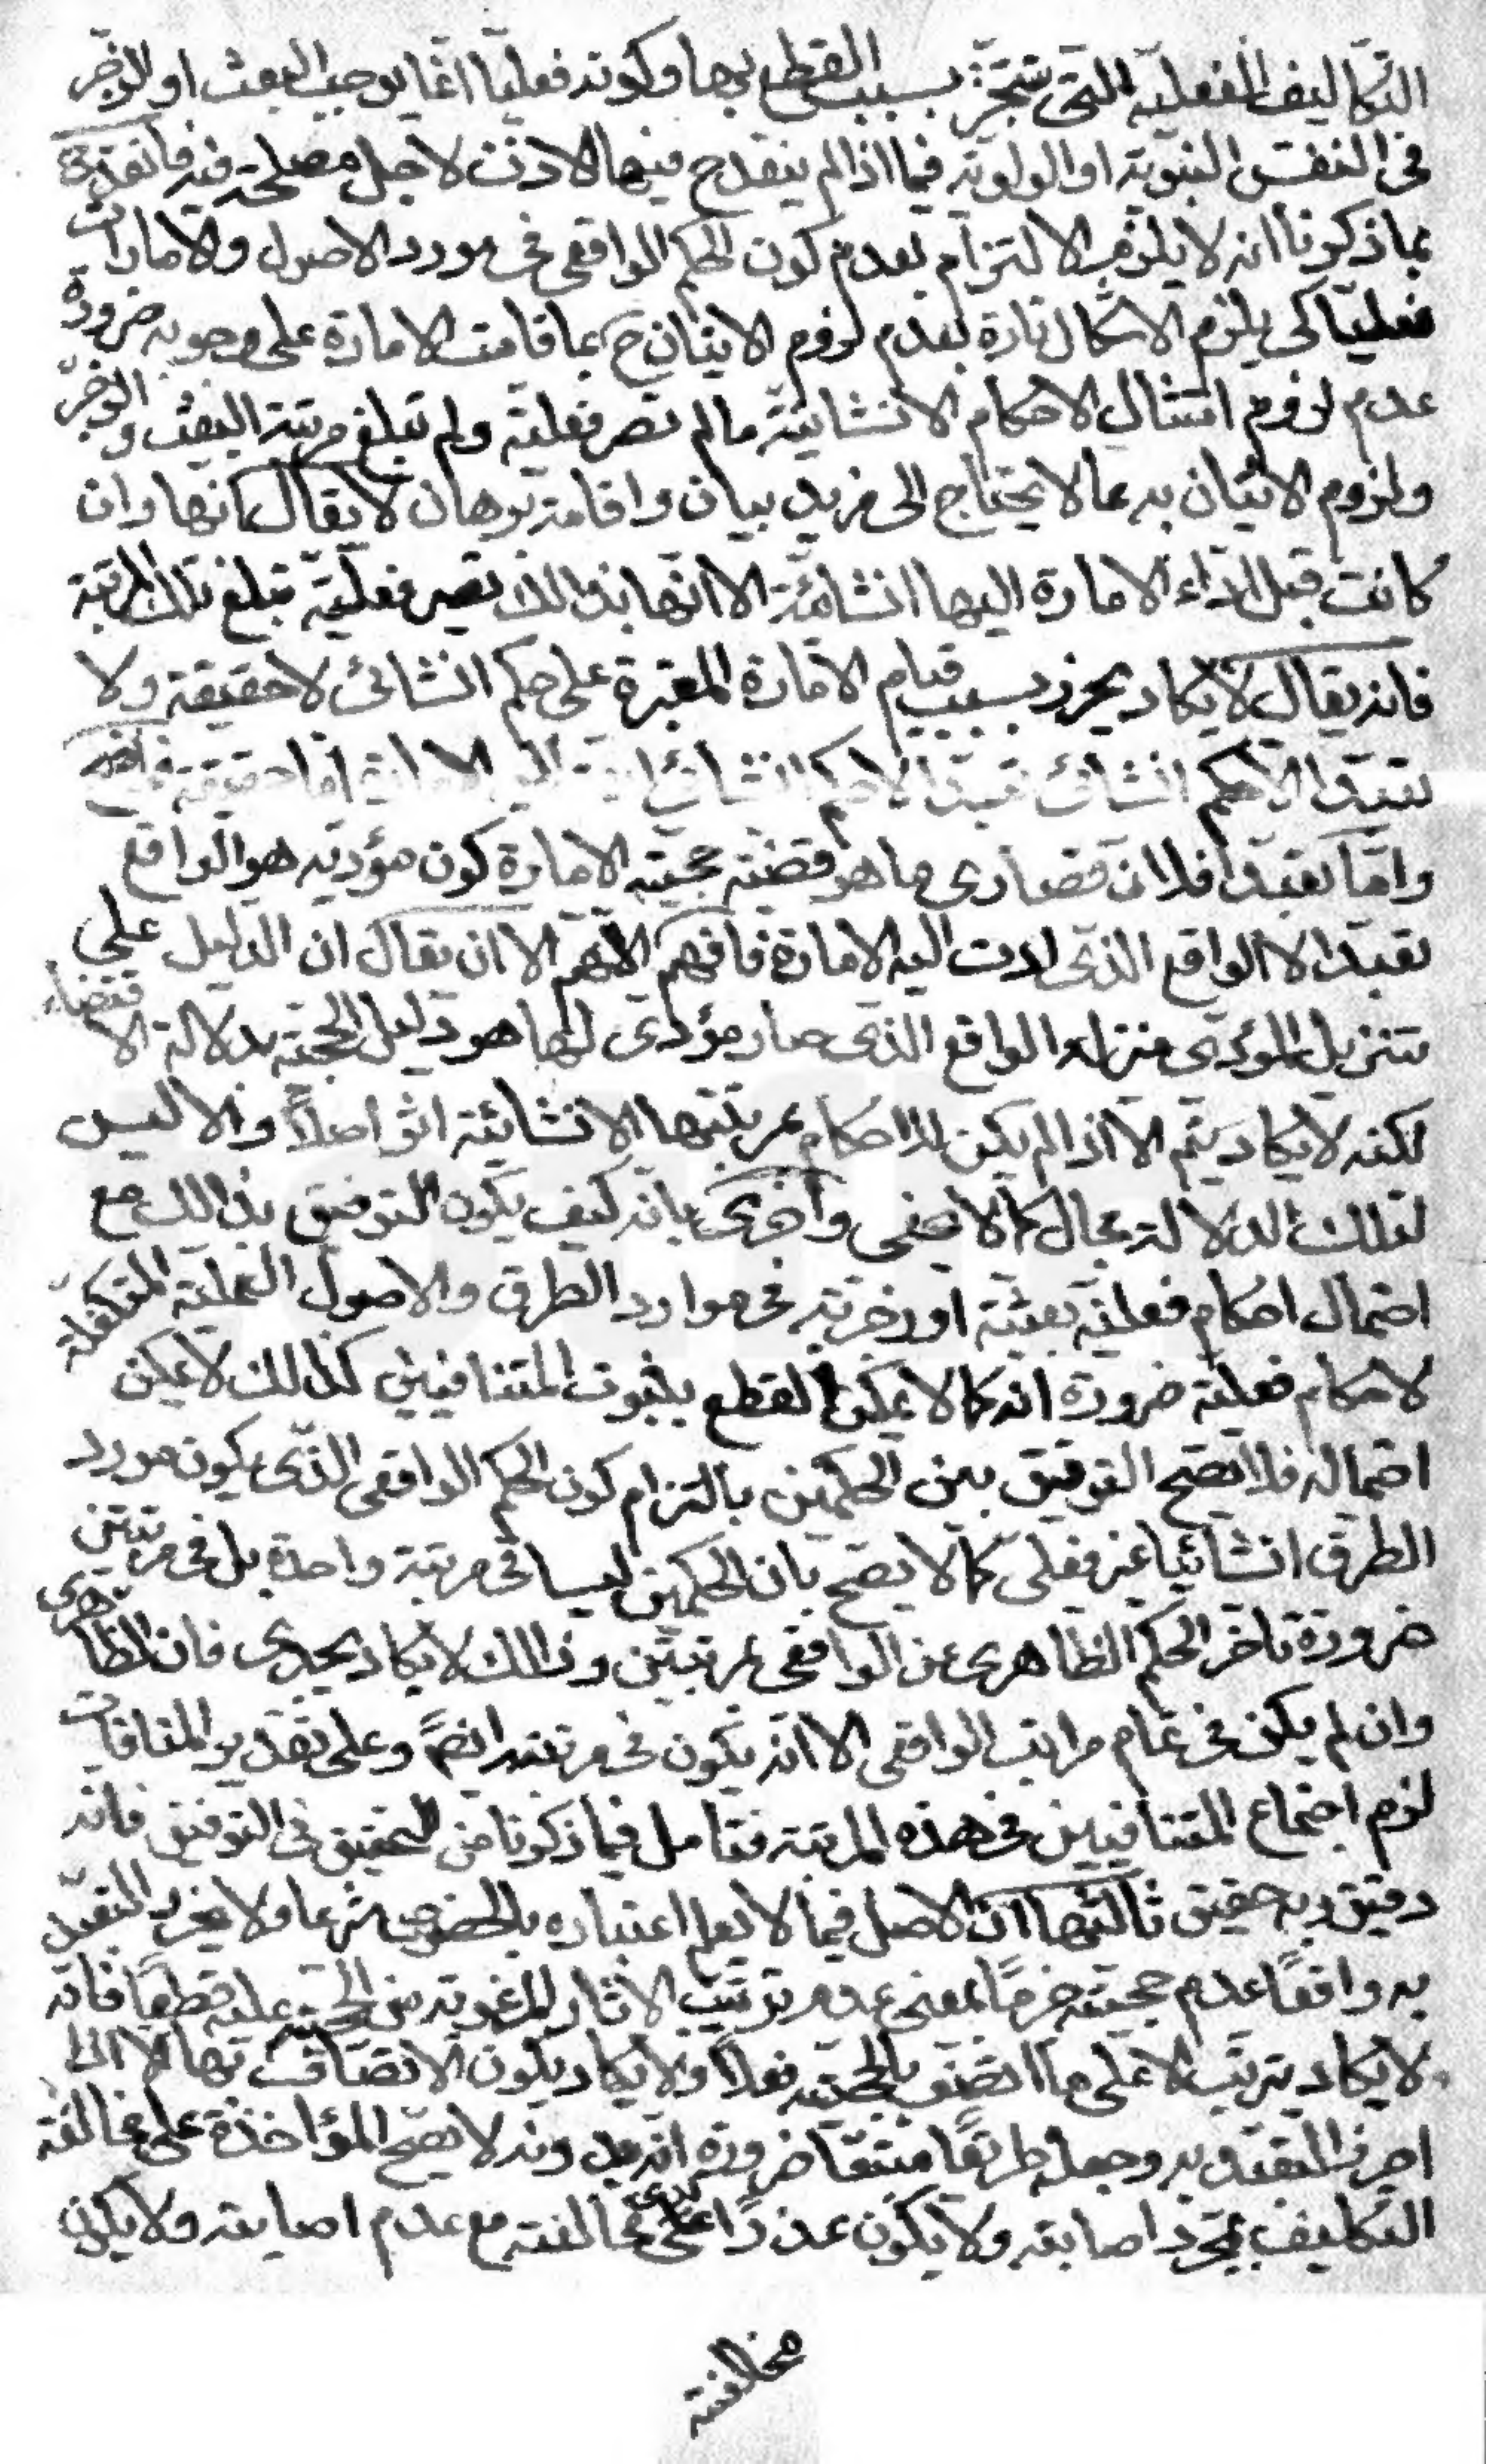 التكاليف الفعلية التى تتنجز بسبب القطع بها وكونه فعليا انما يوجب البعث او الزجر
فى النفس النبوية او الولوية فيما اذا لم ينقدح فيها الاذن لاجل مصلحة فيه فانقدح
بما ذكرنا انه لا يلزم الالتزام بعدم كون الحكم الواقعى فى مورد الاصول والامارات
فعليا كى يلزم الاشكال تارة بعدم لزوم الاتيان ح بما قامت الامارة على وجوبه ضرورة
عدم لزوم امتثال الاحكام الانشائية ما لم تصر فعلية ولم تبلغ مرتبة البعث والزجر
ولزوم الاتيان به مما لا يحتاج الى مزيد بيان واقامة برهان لا يقال كانها وان
كانت قبل اداء الامارة اليها انشائية الا انها بذالك تصير فعلية تبلغ تلك المرتبة
فانه يقال لا يكاد يحرز بسبب قيام الامارة المعتبرة على حكم انشائى لا حقيقة ولا
تعبدا الا حكم انشائى تعبدا لا حكم انشائى اما حقيقة فواضح
واما تعبدا فلان قصارى ما هو قضية حجية الامارة كون مؤديه هو الواقع
تعبدا لا الواقع الذى ادت اليه الامارة فافهم اللهم الا ان يقال ان الدليل على
تنزيل المؤدى منزلة الواقع الذى صار مؤدى لها هو دليل الحجية بدلالة الاقتضاء
لكنه لا يكاد يتم الا اذا لم يكن للاحكام بمرتبتها الانشائية اثر اصلاً والا ليس
لتلك الدلالة مجال كما لا يخفى واخرى بانه كيف يكون التوفيق بذالك مع
احتمال احكام فعلية بعثية او زجرية فى موارد الطرق والاصول العملية المتكفلة
لاحكام فعلية ضرورة انه كما لا يمكن القطع بثبوت المتنافيين كذالك لا يمكن
احتماله فلا يصح التوفيق بين الحكمين بالتزام كون الحكم الواقعى الذى يكون مورد
الطرق انشائيا غير فعلى كما لا يصح بان الحكمين ليسا فى مرتبة واحدة بل فى مرتبتين
ضرورة تاخر الحكم الظاهرى عن الواقعى بمرتبتين وذالك لا يكاد يجدى فان الظاهرى
وان لم يكن فى تمام مراتب الواقعى الا انه يكون فى مرتبته ايضً وعلى تقدير المنافات
لزم اجتماع المتنافيين فى هذه المرتبة فتامل فيما ذكرنا من التحقيق فى التوفيق فانه
دقيق وبه حقيق ثالثها ان الاصل فيما لا يعلم اعتباره بالخصوص شرعا ولا يحرز التعبد
به واقعًا عدم حجيته جزمًا بمعنى عدم ترتب الاثار المرغوبة من الحجة عليه قطعًا فانه
لا يكاد يترتب الا على ما اتصف بالحجية فعلاً ولا يكاد يكون الاتصاف بها الا اذا
احرز التعبد به وجعله طريقًا متبعًا ضرورة انه بدونه لا يصح المؤاخذة على مخالفة
التكليف بمجرد اصابته ولا يكون عذرًا لدى مخالفته مع عدم اصابته ولا يكون
مخالفته